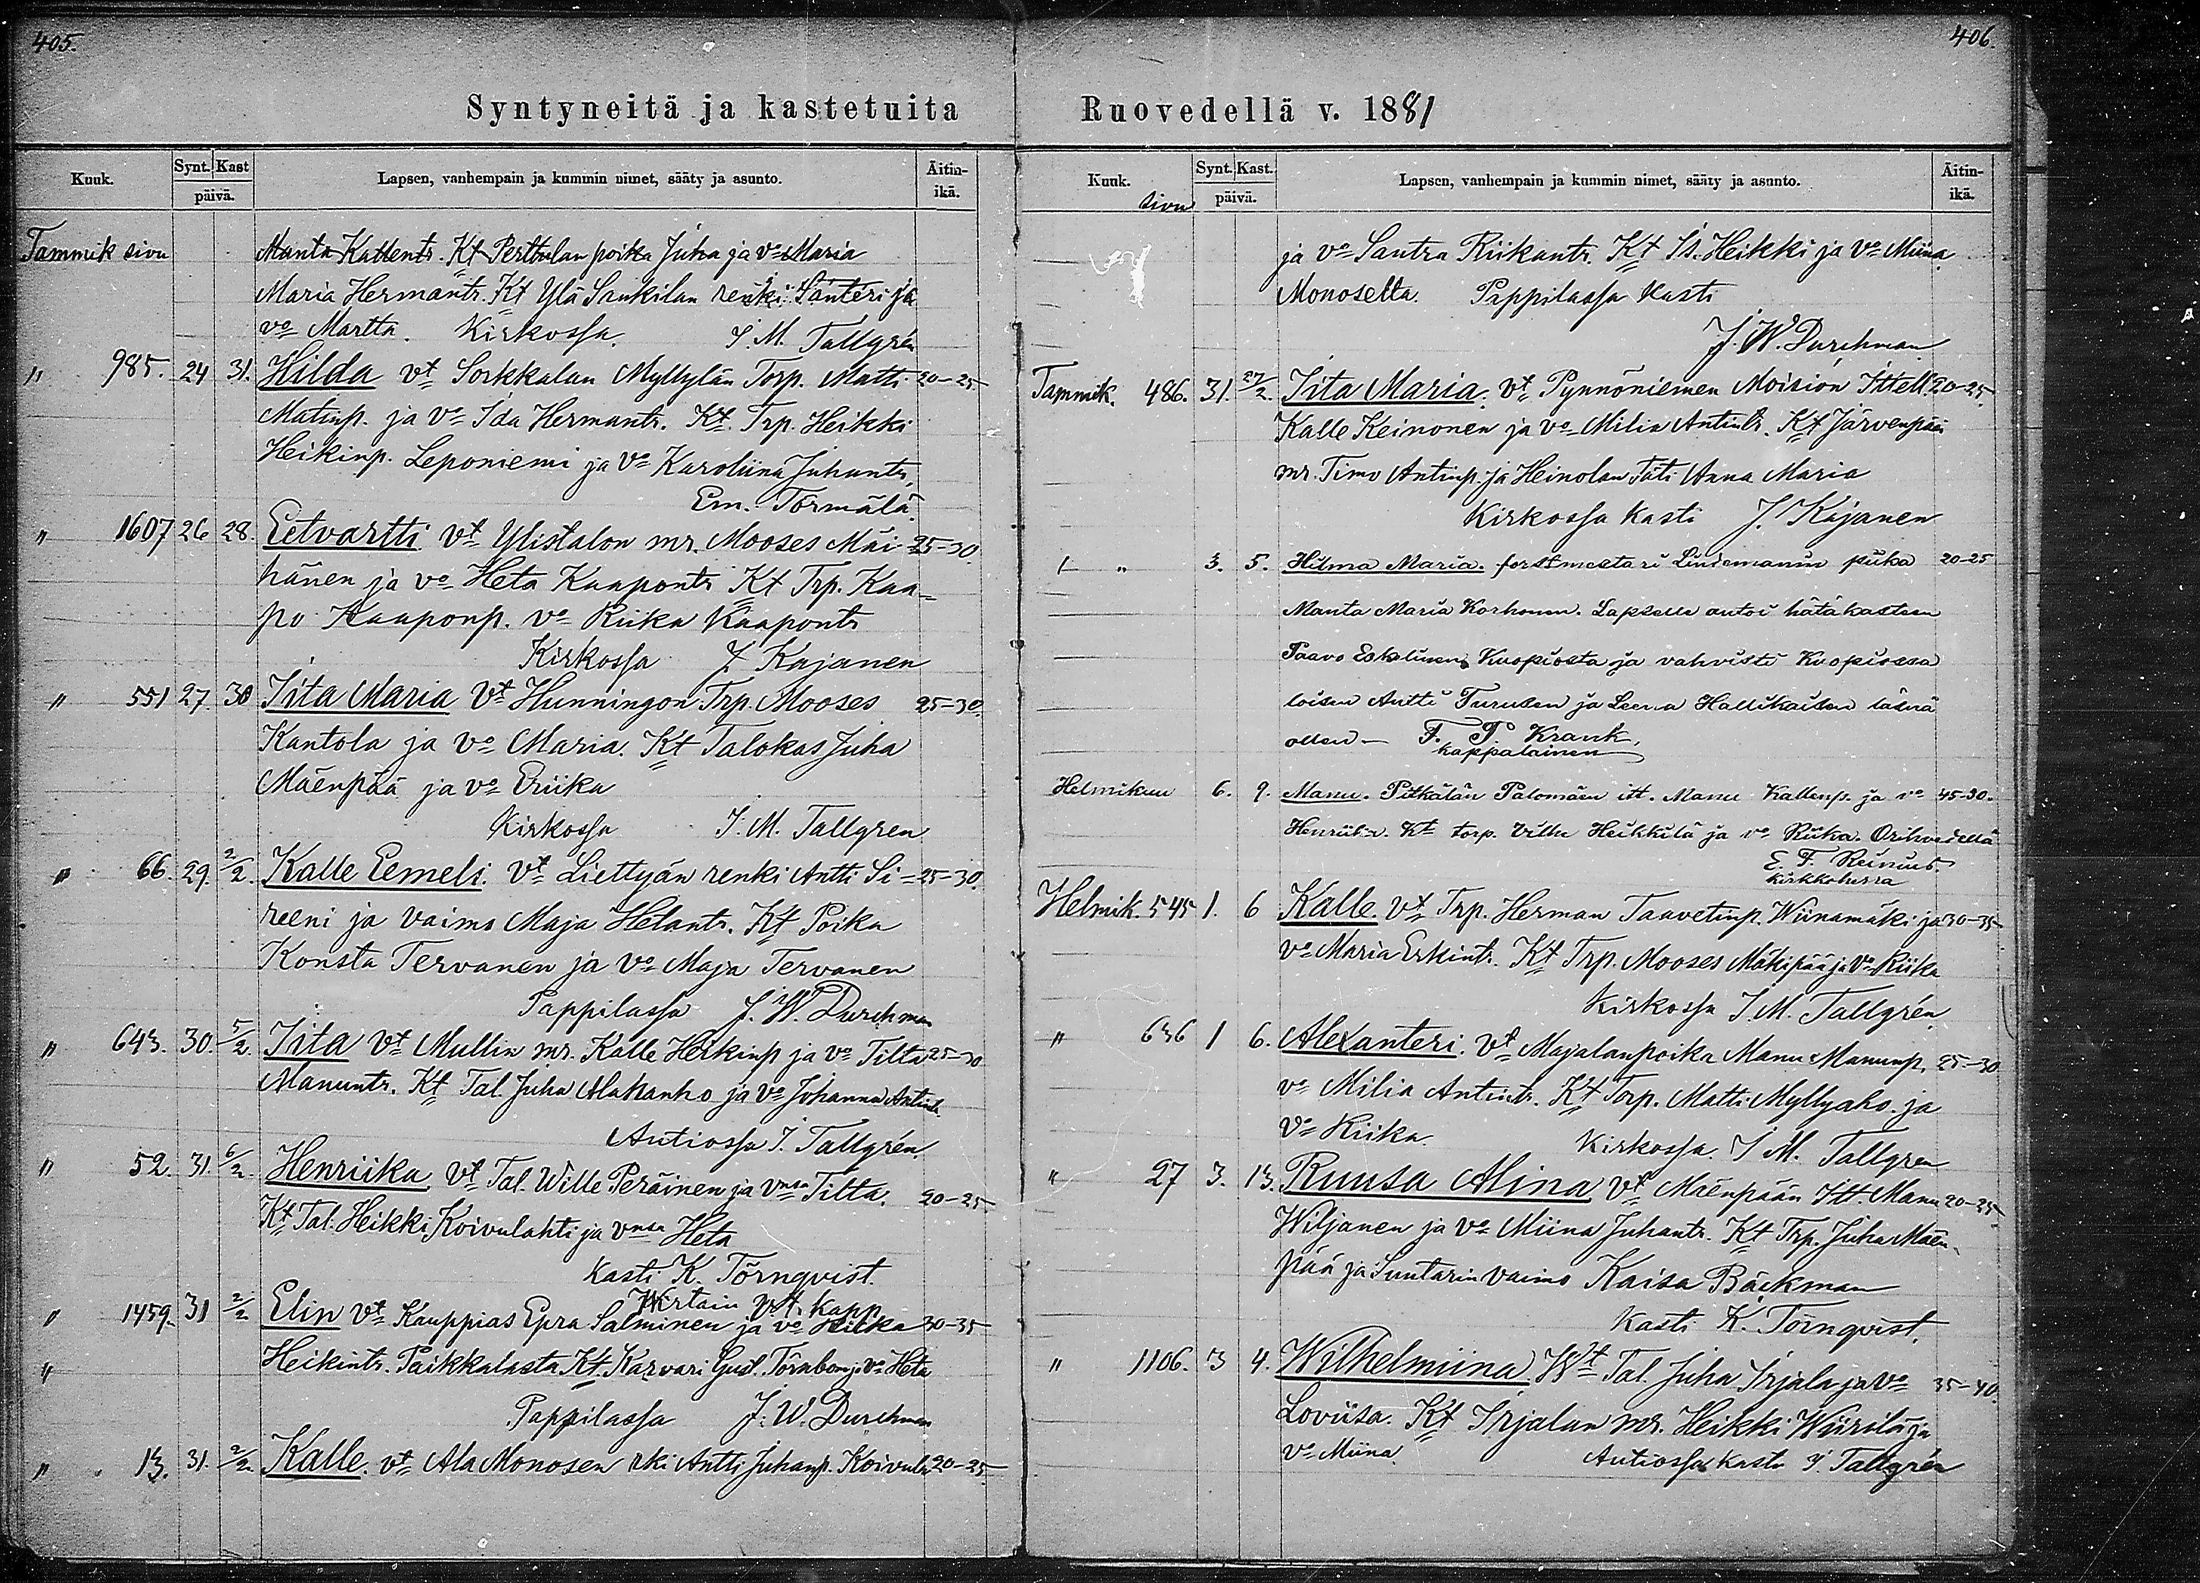 405.
Syntyneitä ja kastetuita
Kuuk. Synt. Kast päivä. Lapsen, vanhempain ja kummin nimet, sääty ja asunto. Äitin-ikä.
Tammik sivu Manta Kallentr. Kt Perttulan poika Juha ja vo Maria
Maria Hermantr. Kt Ylä Sankilan renki Santeri ja
vo Martta. Kirkossa. J. M. Tallgrén
" 985. 24 31. Hilda vt Sorkkalan Myllylän Torp. Matti 20-25
Matinp. ja vo Ida Hermantr. Kt. Trp. Heikki
Heikinp. Leponiemi ja vo Karoliina Juhantr.
Em. Törmälä.
" 1607 26 28. Eetvartti vt Ylistalon mr. Mooses Mäi- 25-30
hänen ja vo Heta Kaapontr Kt Trp. Kaa-
po Kaaponp. vo Riika Kaapontr
Kirkossa J Kajanen
" 551 27. 30 Iita Maria vt Hunningon Trp. Mooses 25-30.
Kantola ja vo Maria. Kt Talokas Juha
Mäenpää ja vo Eriika
Kirkossa J. M. Tallgren
" 66. 29. 2/2. Kalle Eemeli. vt Liettyän renki Antti Si= 25-30.
reeni ja vaimo Maja Helantr. Kt Poika
Konsta Tervanen ja vo Maja Tervanen
Pappilassa J. W. Durchman
" 643. 30. 5/2. Iita vt Mullin mr. Kalle Heikinp ja vo Tilta 25-30
Manuntr. Kt Tal. Juha Alahanko ja vo Johanna Antintr.
Autiossa J. Tallgrén.
" 52. 31. 6/2. Henriika vt Tal. Wille Peräinen ja vnsa Tilta. 20-25
Kt Tal. Heikki Koivulahti ja vnsa Heta
Kasti K. Törnqvist.
Wirtain v.t. kapp
" 1459. 31 2/2 Elin vt Kauppias Epra Salminen ja vo Hilka 30-35
" Heikintr. Paikkalasta Kt. Karvari Gust. Törnbom ja vo Heta
Pappilassa J. W. Durchman
" 13. 31. 2/2. Kalle. vt Ala Monosen rki Antti Juhanp. Koivula 20-25
406.
Ruovedellä v. 1881
Kuuk. sivu Synt. Kast. päivä. Lapsen, vanhempain ja kummin nimet, sääty ja asunto. Äitin-ikä.
ja vo Santra Riikantr. Kt Is. Heikki ja vo Miina
Monoselta. Pappilassa kasti
J. W. Durchman
Tammik. 486. 31. 27/2. Iita Maria. vt Pynnöniemen Moision Ittell. 20-25.
Kalle Keinonen ja vo Milia Antintr. Kt Järvenpään
mr. Timo Antinp. ja Heinolan Täti Anna Maria
Kirkossa kasti J. Kajanen
" 3. 5. Hilma Maria. forstmestari Lindemanin piika 20-25
Manta Maria Korhonen. Lapselle antoi hätäkasteen
Paavo Eskelinen Kuopiosta ja vahvisti Kuopiossa
loisen Antti Turusen ja Leena Hallikaisen läsnä
ollen — F. P. Krank,
kappalainen
Helmikuu 6. 9. Manu. Pitkälän Palomäen itt. Manu Kallenp. ja vo 45-30.
Kt torp. Ville Heikkilä ja vo Riika. Orihvedellä
E. F. Reinius.
kirkkoherra
Helmik. 545 1. 6 Kalle. vt Trp. Herman Taavetinp. Wiinamäki ja 30-35
vo Maria Erkintr. Kt Trp. Mooses Mäkipää ja vo Riika
Kirkossa J. M. Tallgrén
" 636 1 6. Alexanteri. vt Majalanpoika Manu Manunp. 25-30
vo Milia Antintr. Kt Torp. Matti Myllyaho. ja
vo Riika. Kirkossa. J M. Tallgren
" 27 3. 13. Ruusa Alina vt Mäenpään Itt. Manu 20-25.
Wiljanen ja vo Miina Juhantr. Kt Trp. Juha Mäen-
pää ja Suutarin vaimo Kaisa Bäckman
Kasti K. Törnqvist.
" 1106. 3 4. Wilhelmiina. Vt Tal. Juha Irjala ja vo 35-40.
Loviisa. Kt Irjalan mr. Heikki Wiirilä ja
vo Miina. Autiossa kasti J. Tallgrén